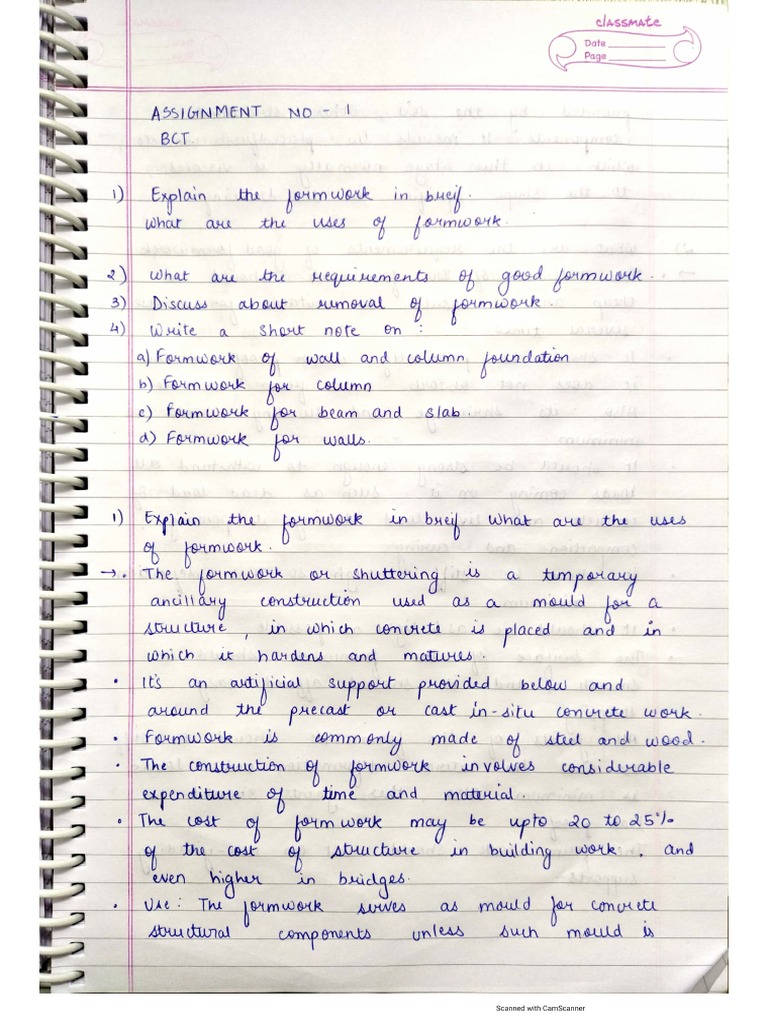 classmate
Date
Page
ASSIGNMENT NO - 1
BCT.
1) Explain the formwork in breif.
What are the uses of formwork.
2) What are the requirements of good formwork.
3) Discuss about removal of formwork.
4) Write a short note on :
a) Formwork of wall and column foundation
b) Formwork for column
c) Formwork for beam and slab.
d) Formwork for walls.
1) Explain the formwork in breif what are the uses
of formwork.
→ • The formwork or shuttering is a temporary
ancillary construction used as a mould for a
structure, in which concrete is placed and in
which it hardens and matures.
• It's an artificial support provided below and
around the precast or cast in-situ concrete work.
• Formwork is commonly made of steel and wood.
• The construction of formwork involves considerable
expenditure of time and material.
• The cost of formwork may be upto 20 to 25%
of the cost of structure in building work, and
even higher in bridges.
• Use: The formwork serves as mould for concrete
structural components unless such mould is
Scanned with CamScanner